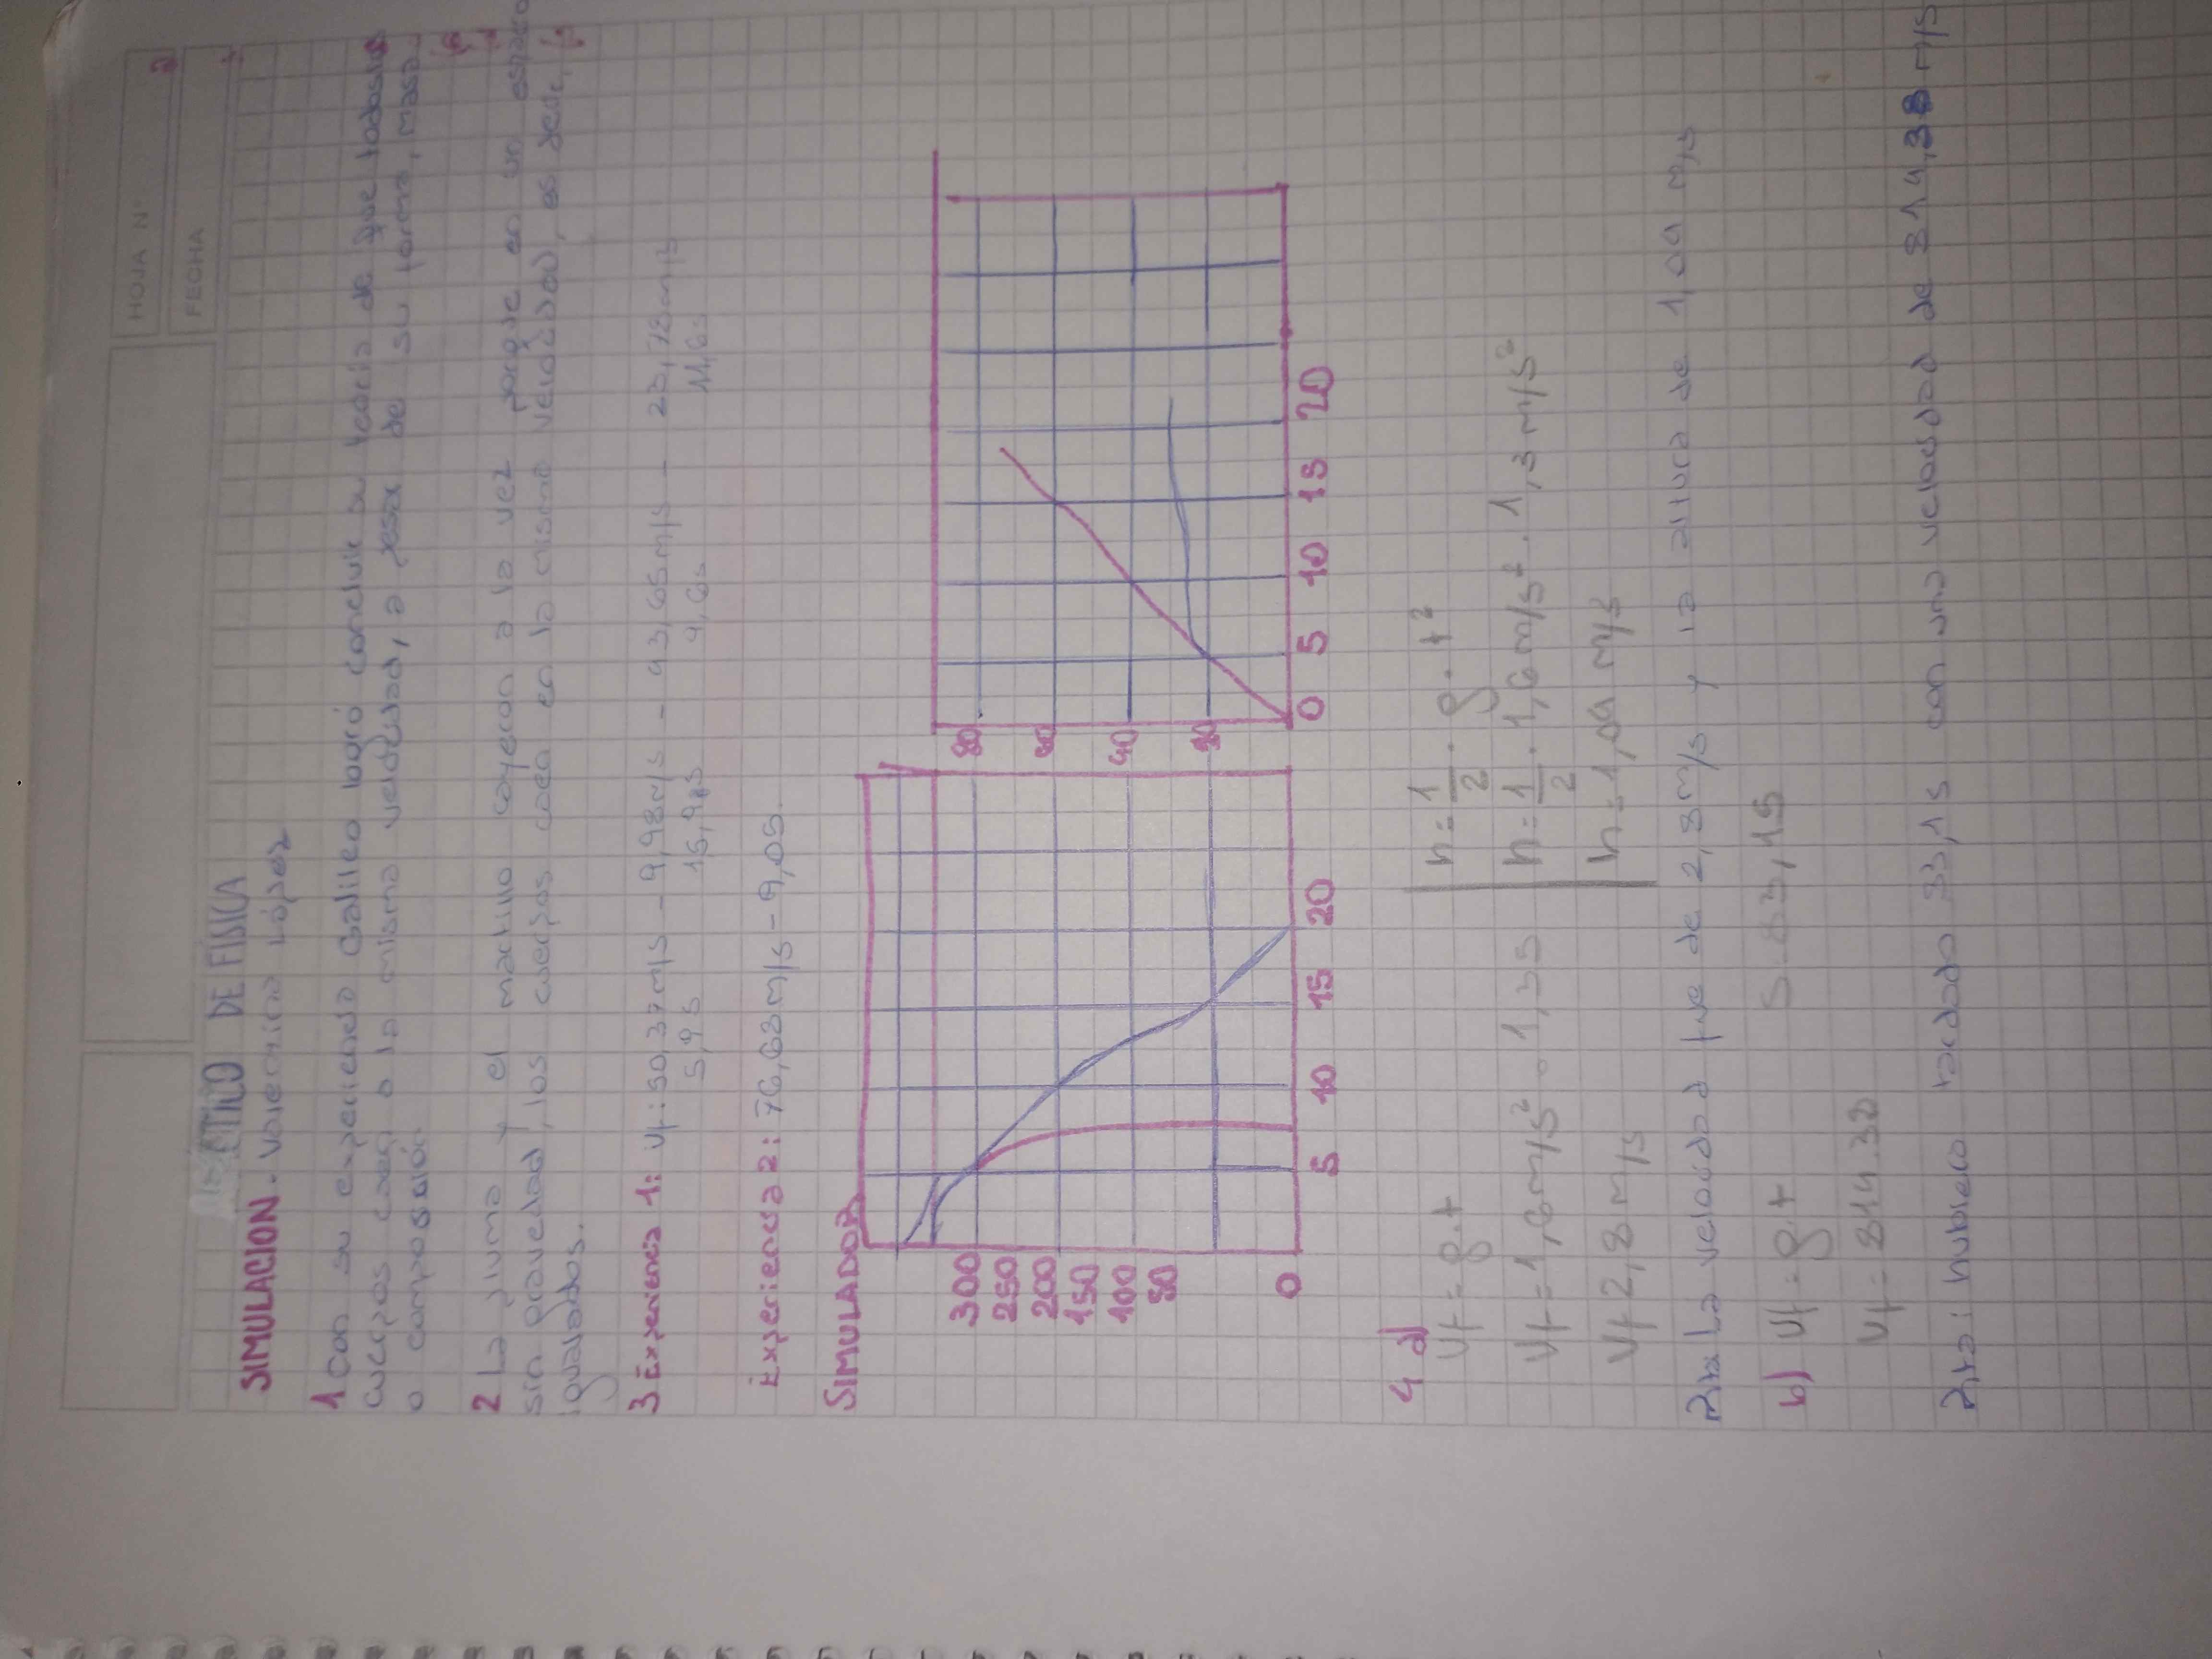 HOJA N°
FECHA
PRÁCTICO DE FÍSICA
SIMULACION. Valentina López
1 Con su experiencia Galileo logró concluir su teoría de que todos los
cuerpos caen a la misma velocidad, a pesar de su forma, masa
o composición.
2 La pluma y el martillo cayeron a la vez porque en un espacio
sin gravedad, los cuerpos caen en la misma velocidad, es decir,
igualados.
3 Experiencia 1: Vf: 50,37 m/s - 9,98 m/s - 43,65 m/s - 23,78 m/s
5,9 s 15,9 s 4,6 s 11,6 s
Experiencia 2: 76,63 m/s - 9,05.
SIMULADOR
300
250
200
150
100
50
0
5 10 15 20
80
40
0 5 10 15 20
4 a)
Vf = g.t
h = 1/2 . g . t²
Vf = 1,6 m/s² . 1,3 s
h = 1/2 . 1,6 m/s² . 1,3 m/s²
Vf 2,8 m/s
h = 1,04 m/s
Rta: La velocidad fue de 2,8 m/s y la altura de 1,04 m/s
b) Vf = g.t
Vf = 814.38
Rta: hubiera tardado 83,1 s con una velocidad de 814,38 m/s